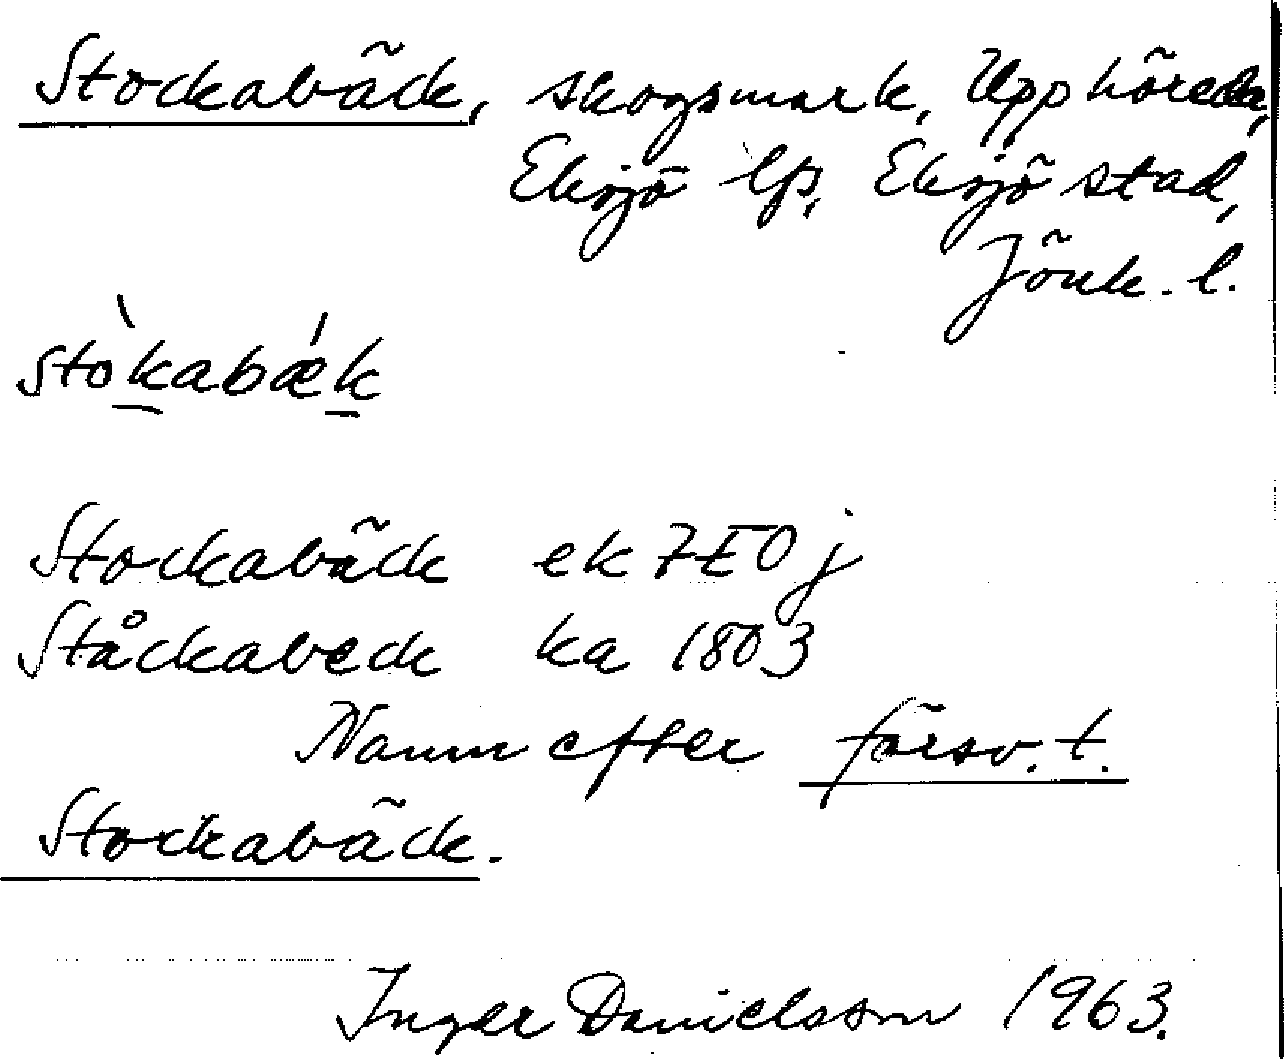 Stockabäck, skogsmark, Upphöreda,
Eksjö lfs, Eksjö stad,
Jönk. l.
stòkabǽk
Stockabäck ek 7E0j
Ståckabeck ka 1803
Namn efter försv. t.
Stockabäck.
Inger Danielsson 1963.